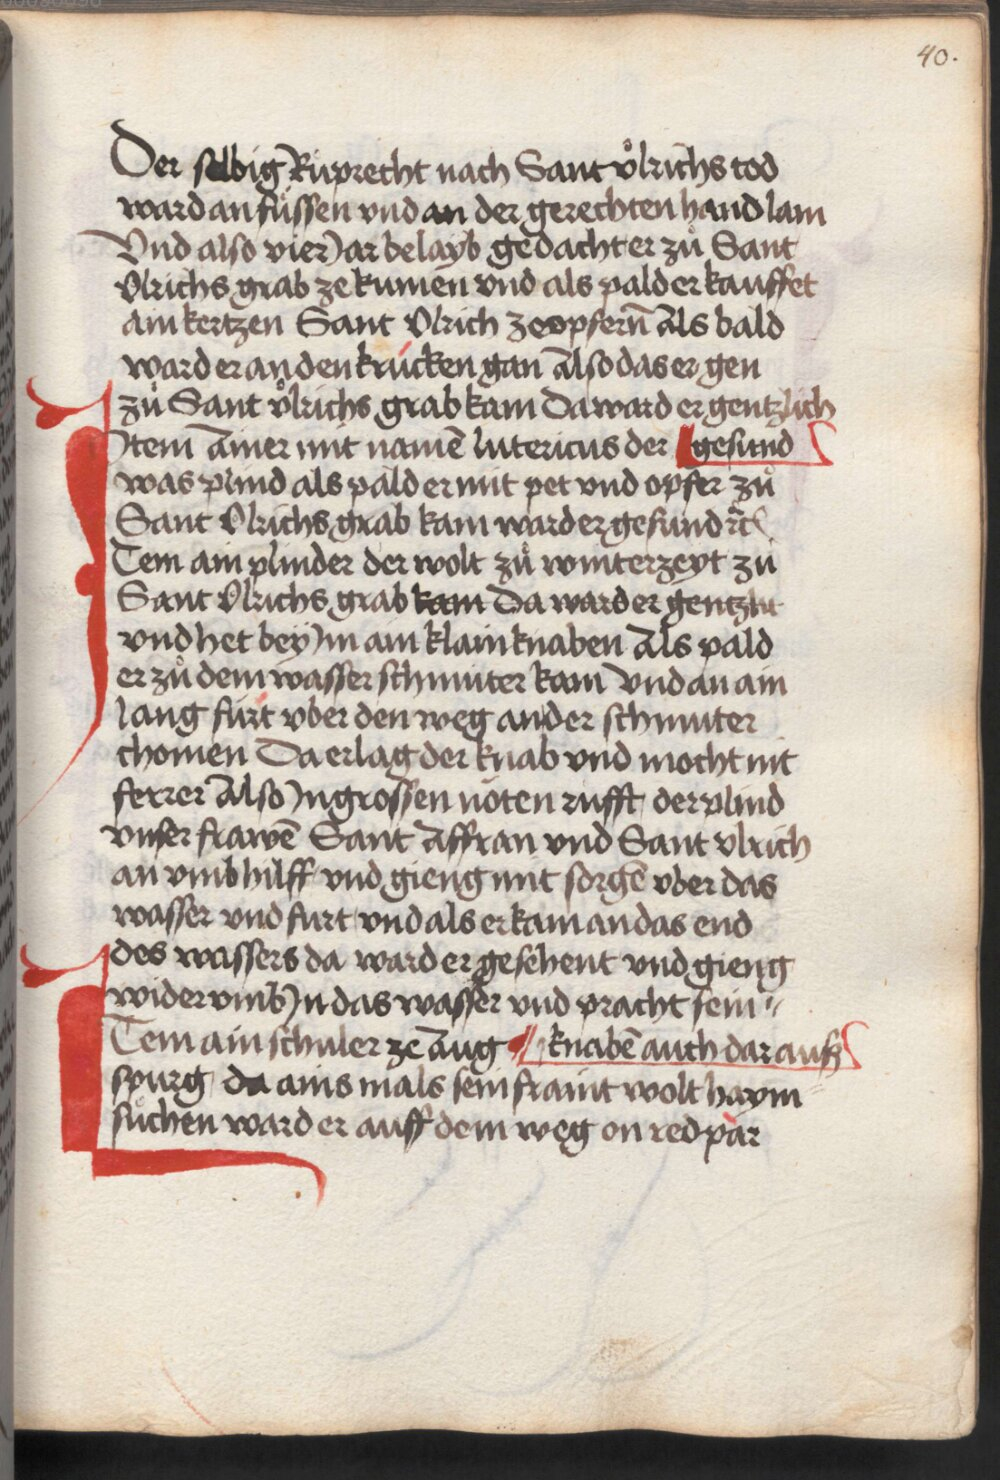 40.
Der selbig Ruprecht nach Sant vͦlrichs tod
ward an fuͤssen vnd an der gerechten hand lam
Vnd also vier Jar belayb gedacht er zuͦ Sant
Vlrichs grab ze kumen vnd als pald er kauffet
ain kertzen Sant Vlrich ze opfern̄ Als bald
ward er an den krucken gan Also das er gen
zuͦ Sant vͦlrichs grab kam Da ward er gentzlich
Jtem Ainer mit namē lutericus der gesund
was plind als pald er mit pet vnd opfer zuͦ
Sant Vlrichs grab kam ward er gesund rc̄
Tem ain plinder der wolt zuͦ winterzeyt zu
Sant Vlrichs grab kam Da ward er gentzlit
vnd het bey Jm ain klain knaben Als pald
er zuͦ dem wasser schmuter kam Vnd an ain
lang furt vber den weg an der schmuter
chomen Da erlag der knab vnd mocht nit
ferrer Also Jn grossen nöten rufft der plind
vnser frawē Sant Affran vnd Sant vlrich
an vmb hilff vnd gieng mit sorgē vber das
wasser vnd furt vnd als er kam an das end
des wassers da ward er gesehent vnd gieng
wider vmb Jn das wasser vnd pracht sein
Tem ain schuler ze Aug knabē auch dar auß
spurg da ains mals sein fraint wolt haym
suͦchen ward er auff dem weg on redpar